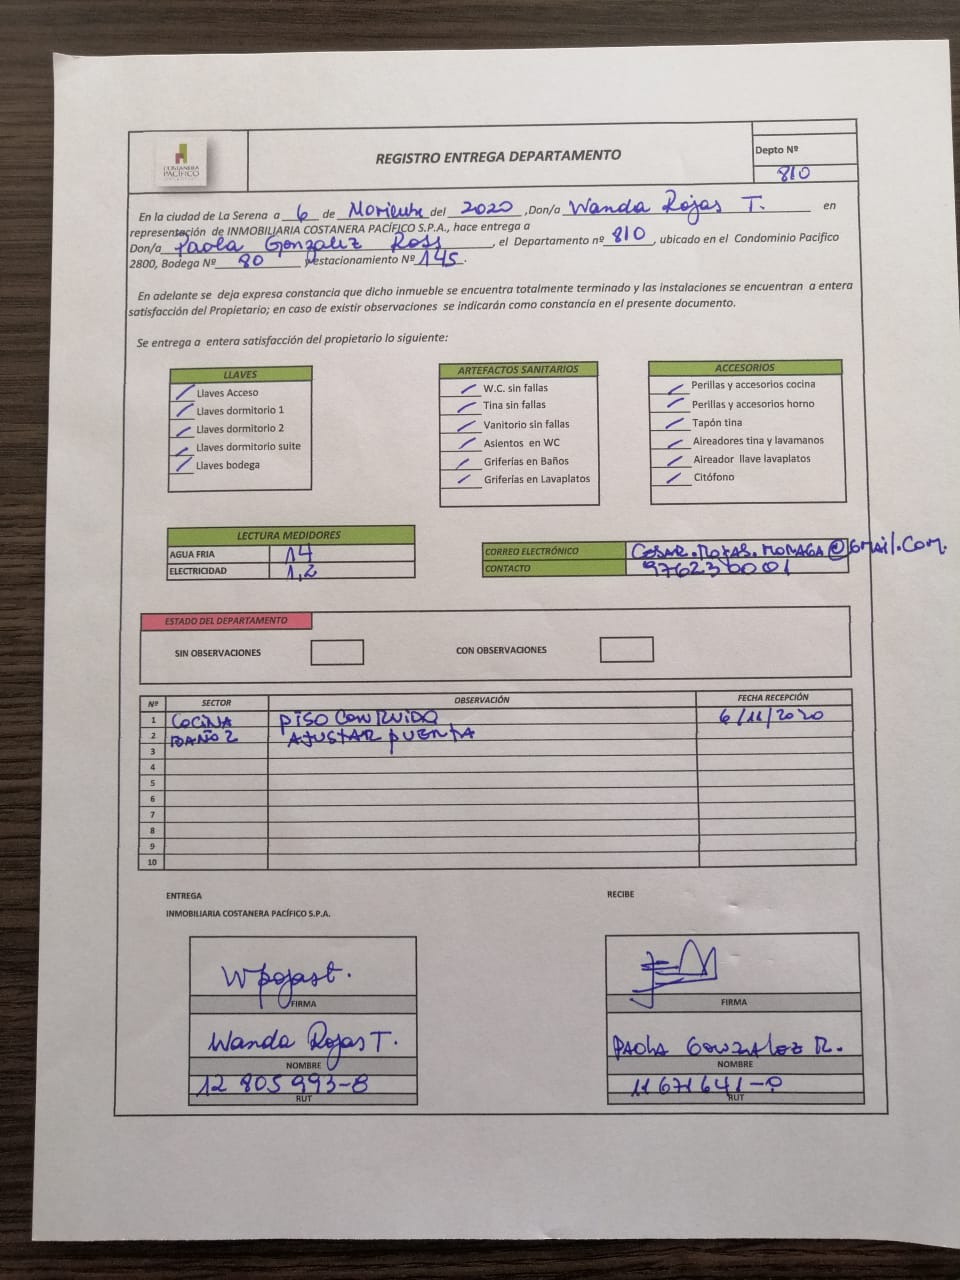 COSTANERA
PACÍFICO
REGISTRO ENTREGA DEPARTAMENTO
Depto Nº
810
En la ciudad de La Serena a 6 de Noviembre del 2020 ,Don/a Wanda Rojas T. en
representación de INMOBILIARIA COSTANERA PACÍFICO S.P.A., hace entrega a
Don/a Paola Gonzalez Ross, el Departamento nº 810, ubicado en el Condominio Pacifico
2800, Bodega Nº 80 yestacionamiento Nº 145.
En adelante se deja expresa constancia que dicho inmueble se encuentra totalmente terminado y las instalaciones se encuentran a entera
satisfacción del Propietario; en caso de existir observaciones se indicarán como constancia en el presente documento.
Se entrega a entera satisfacción del propietario lo siguiente:
LLAVES
Llaves Acceso
Llaves dormitorio 1
Llaves dormitorio 2
Llaves dormitorio suite
Llaves bodega
ARTEFACTOS SANITARIOS
W.C. sin fallas
Tina sin fallas
Vanitorio sin fallas
Asientos en WC
Griferías en Baños
Griferías en Lavaplatos
ACCESORIOS
Perillas y accesorios cocina
Perillas y accesorios horno
Tapón tina
Aireadores tina y lavamanos
Aireador llave lavaplatos
Citófono
LECTURA MEDIDORES
AGUA FRIA 14
ELECTRICIDAD 1,2
CORREO ELECTRÓNICO CESAR.ROJAS.MORAGA@GMAIL.COM.
CONTACTO 976230001
ESTADO DEL DEPARTAMENTO
SIN OBSERVACIONES
CON OBSERVACIONES
Nº SECTOR OBSERVACIÓN FECHA RECEPCIÓN
1 COCINA PISO CON RUIDO 6/11/2020
2 BAÑO 2 AJUSTAR PUERTA
3
4
5
6
7
8
9
10
ENTREGA
INMOBILIARIA COSTANERA PACÍFICO S.P.A.
RECIBE
WRojast.
FIRMA
Wanda Rojas T.
NOMBRE
12 805 993-8
RUT
FIRMA
PAOLA GONZALEZ R.
NOMBRE
11 671 641-
RUT